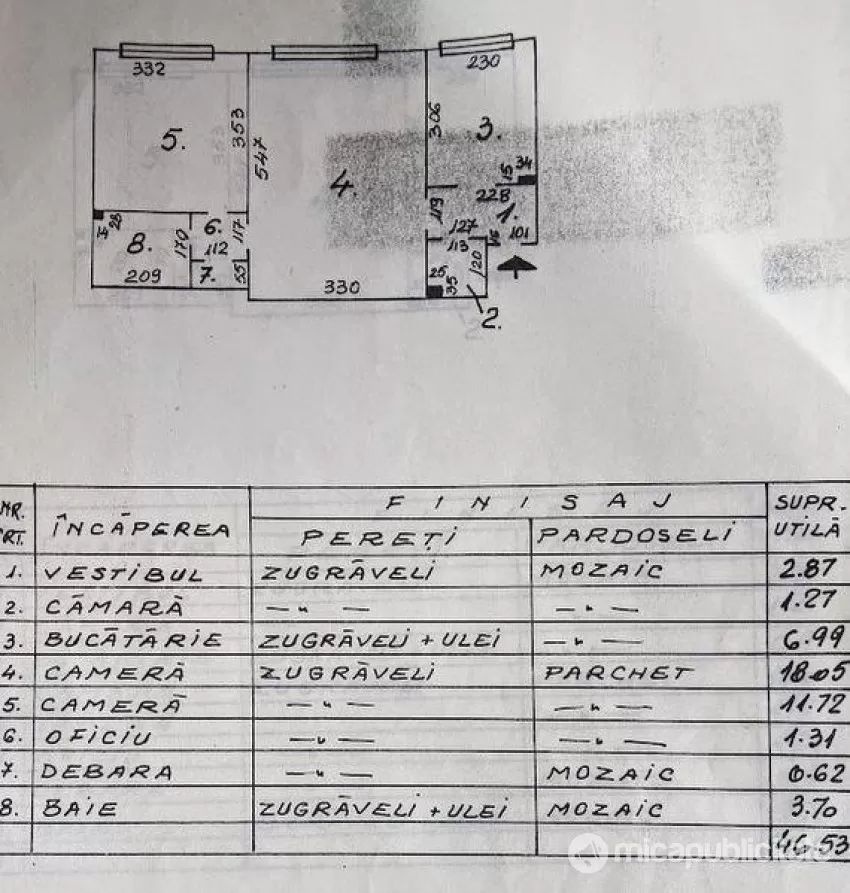 332
230
5.
353
547
306
3.
4.
15
34
228
119
1.
28
6.
117
127
101
8.
170
112
113
120
209
7.
55
330
26
35
2.
NR. CRT. ÎNCĂPEREA FINISAJ SUPR. UTILĂ
PEREȚI PARDOSELI
1. VESTIBUL ZUGRĂVELI MOZAIC 2.87
2. CĂMARĂ — " — — " — 1.27
3. BUCĂTĂRIE ZUGRĂVELI + ULEI — " — 6.99
4. CAMERĂ ZUGRĂVELI PARCHET 18.05
5. CAMERĂ — " — — " — 11.72
6. OFICIU — " — — " — 1.31
7. DEBARA — " — MOZAIC 0.62
8. BAIE ZUGRĂVELI + ULEI MOZAIC 3.70
46.53